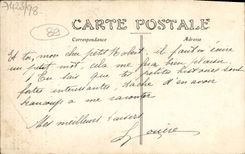 7423/98
89
CARTE POSTALE
Correspondance
Adresse
Et toi, mon cher petit Robert, il faut m'écrire
un petit mot, cela me fera bien plaisir.
Tu sais que tes petites histoires sont
fortes intéressantes, tâche d'en avoir
beaucoup à me raconter
Mes meilleurs baisers